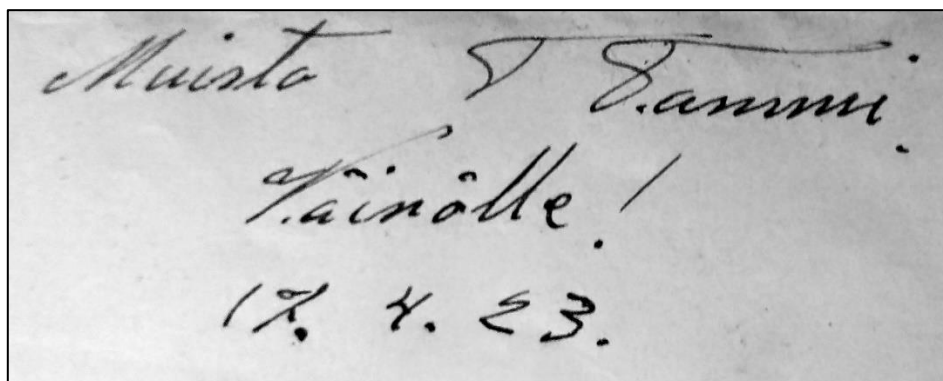 Muisto T Tammi.
Väinölle!
17. 4. 23.